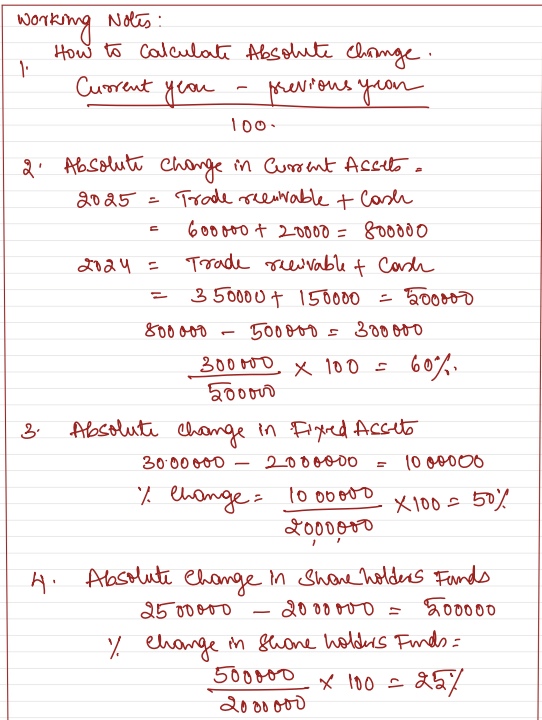 Working Notes:
1. How to Calculate Absolute change.
Current year - previous year
100.
2. Absolute Change in Current Assets =
2025 = Trade receivable + Cash
= 600000 + 20000 = 800000
2024 = Trade receivable + Cash
= 350000 + 150000 = 500000
800000 - 500000 = 300000
300000 × 100 = 60%.
500000
3. Absolute change in Fixed Assets
3000000 - 2000000 = 1000000
% Change = 1000000 × 100 = 50%
2000000
4. Absolute Change in Shareholders Funds
2500000 - 2000000 = 500000
% change in Share holders Funds =
500000 × 100 = 25%
2000000